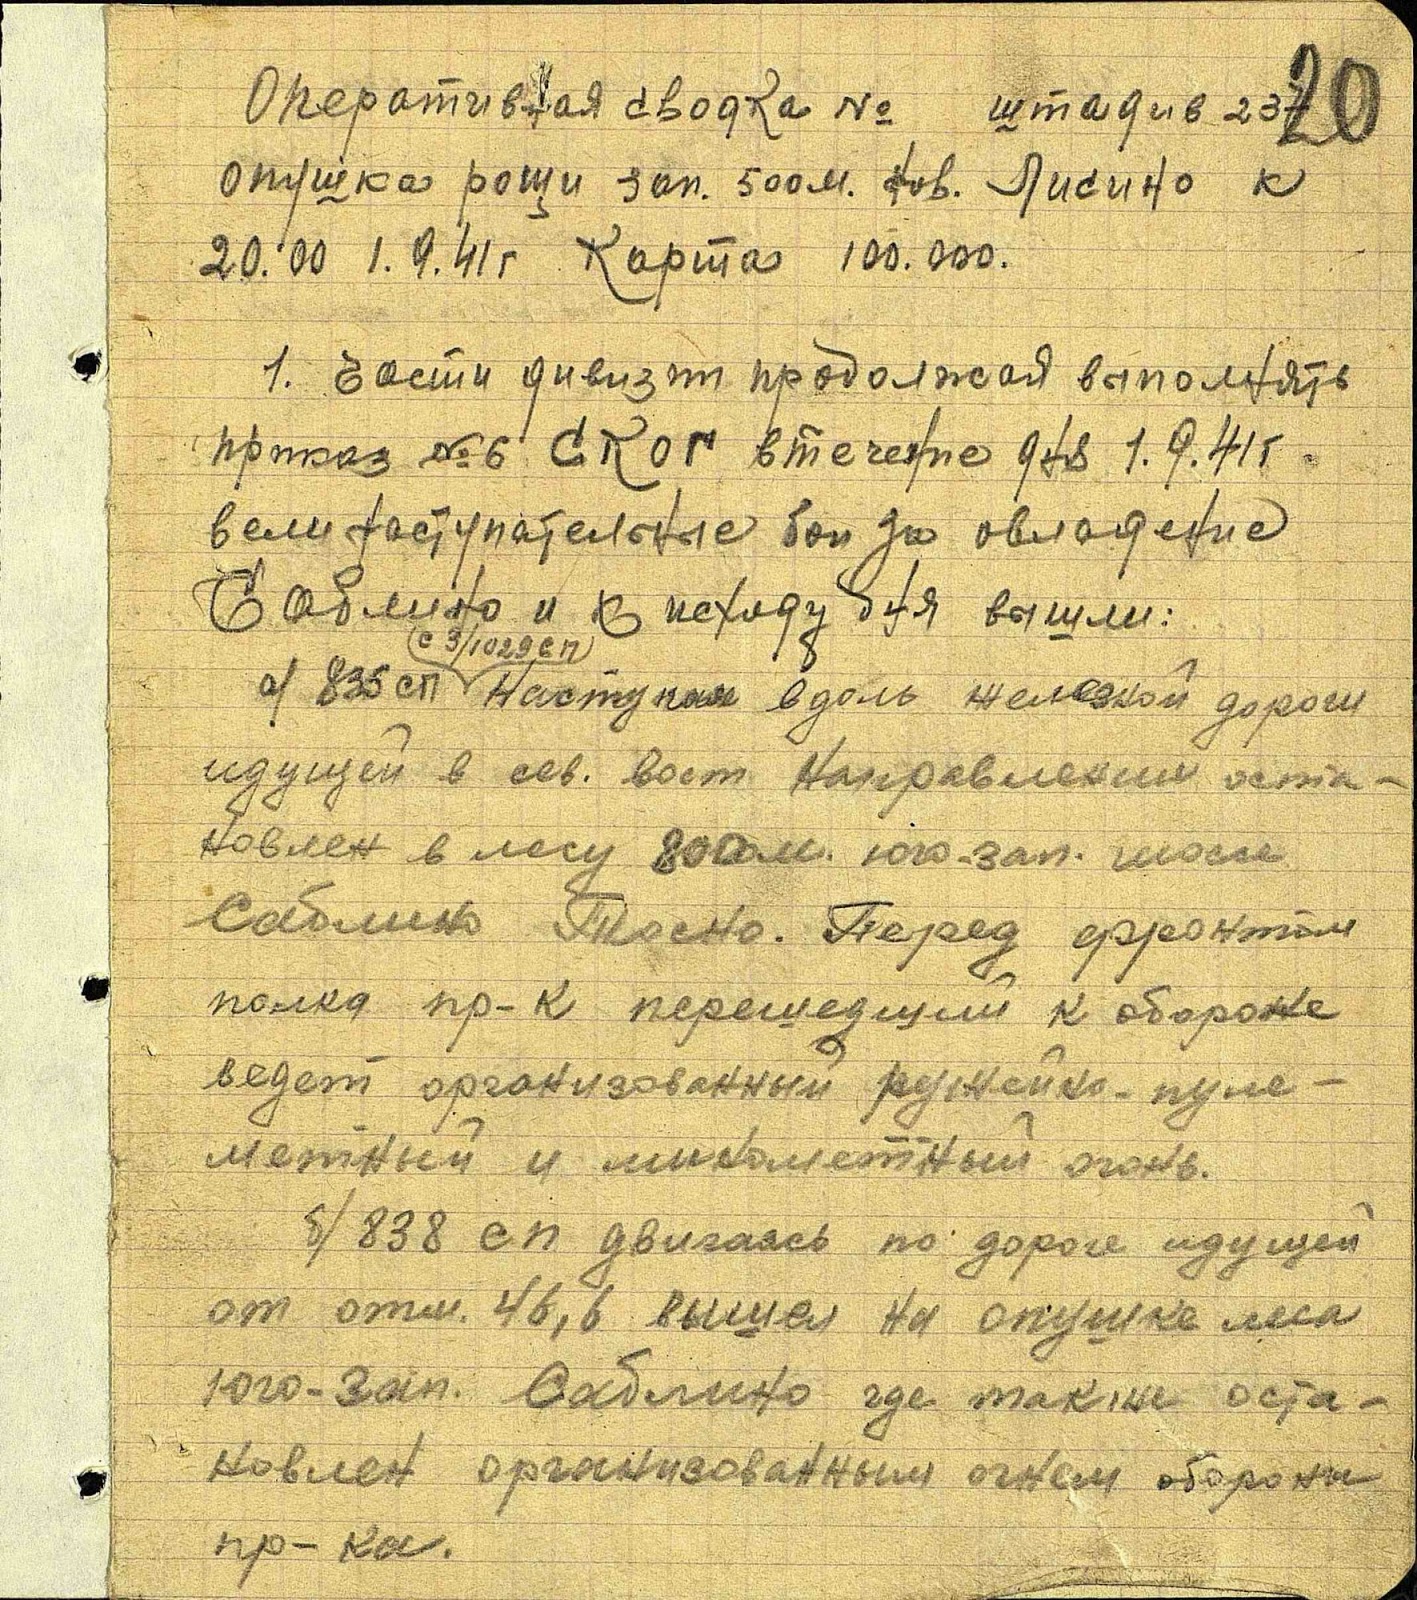 20
Оперативная сводка № штадив 237
опушка рощи зап. 500м. нов. Лисино к
20.00 1.9.41г Карта 100.000.
1. Части дивизии продолжая выполнять
приказ №6 СКОГ втечение дня 1.9.41г.
вели наступательные бои за овладение
Саблино и к исходу дня вышли:
с 3/1029 сп
а/ 835 сп наступая вдоль железной дороги
идущей в сев. вост направлении оста-
новлен в лесу 800м. юго-зап. шоссе
Саблино Тосно. Перед фронтом
полка пр-к перешедший к обороне
ведет организованный ружейно-пуле-
метный и минометный огонь.
б/ 838 сп двигаясь по дороге идущей
от отм. 46,6 вышел на опушке леса
юго-зап. Саблино где также оста-
новлен организованным огнем обороны
пр-ка.